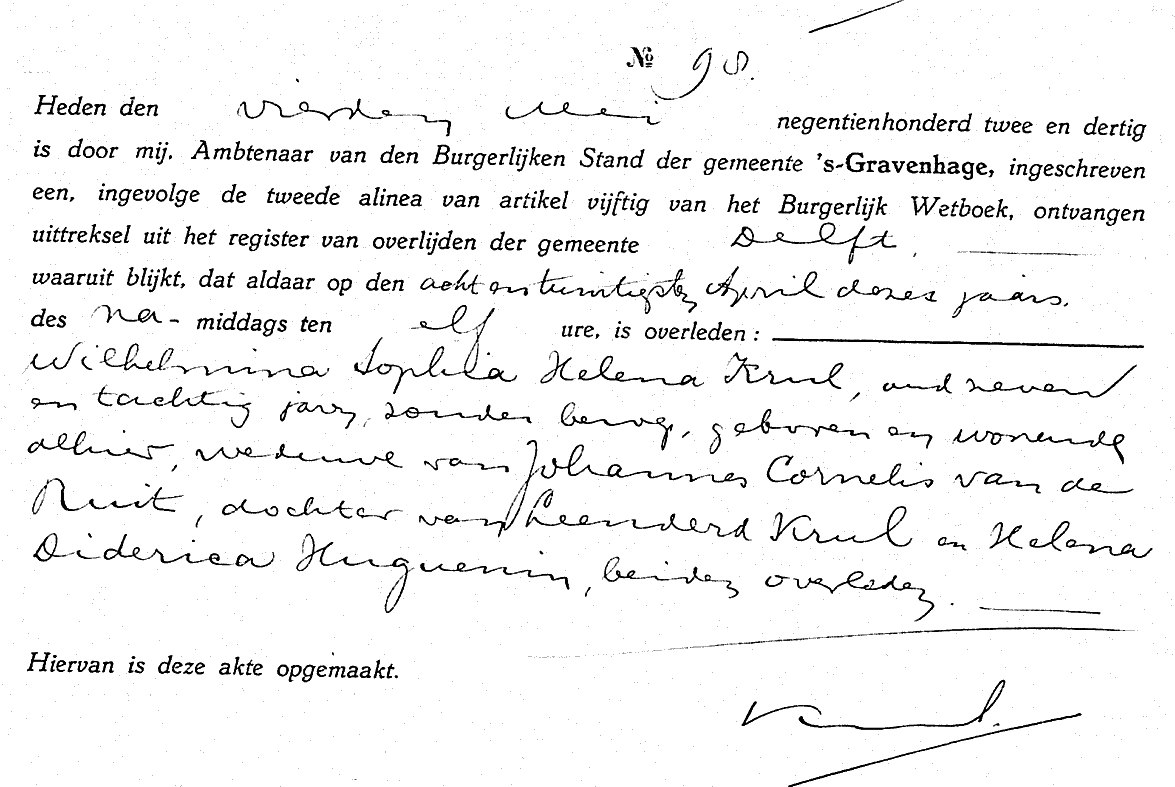 No 98.
Heden den vierden Mei negentienhonderd twee en dertig
is door mij. Ambtenaar van den Burgerlijken Stand der gemeente 's-Gravenhage, ingeschreven
een, ingevolge de tweede alinea van artikel vijftig van het Burgerlijk Wetboek, ontvangen
uittreksel uit het register van overlijden der gemeente Delft,
waaruit blijkt, dat aldaar op den achtentwintigsten April dezes jaars.
des na- middags ten elf ure, is overleden:
Wilhelmina Sophia Helena Krul, oud zeven
en tachtig jaar, zonder beroep, geboren en wonende
alhier, weduwe van Johannes Cornelis van de
Ruit, dochter van Leenderd Krul en Helena
Diderica Huguenin, beiden overleden.
Hiervan is deze akte opgemaakt.